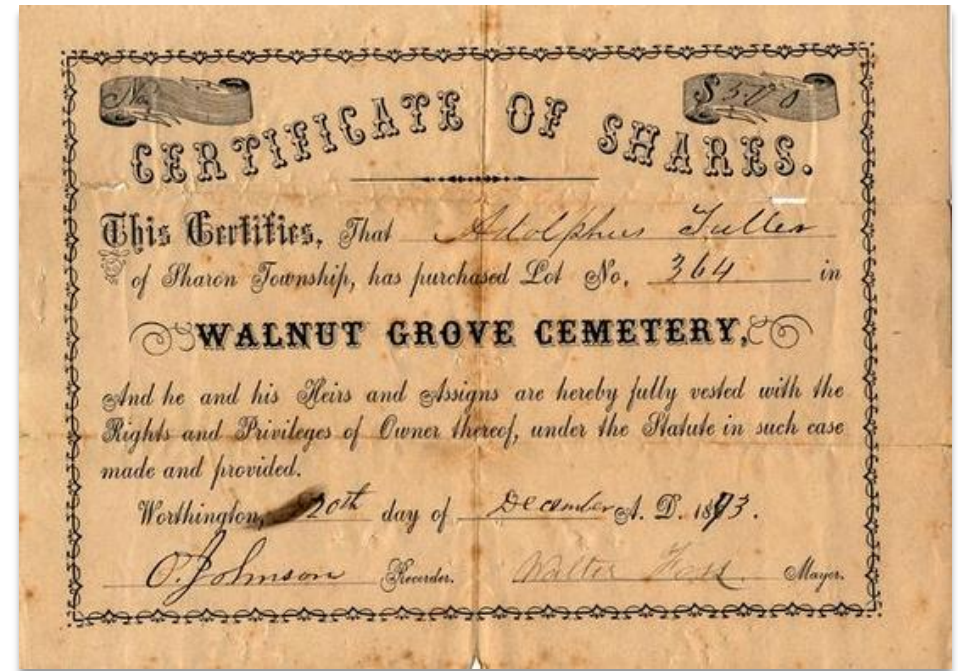 No. $5.00
CERTIFICATE OF SHARES.
This Certifies, That Adolphus Fuller
of Sharon Township, has purchased Lot No. 364 in
WALNUT GROVE CEMETERY,
And he and his Heirs and Assigns are hereby fully vested with the
Rights and Privileges of Owner thereof, under the Statute in such case
made and provided.
Worthington, 20th day of December A. D. 1873.
O. Johnson Recorder. Walter Mayor.